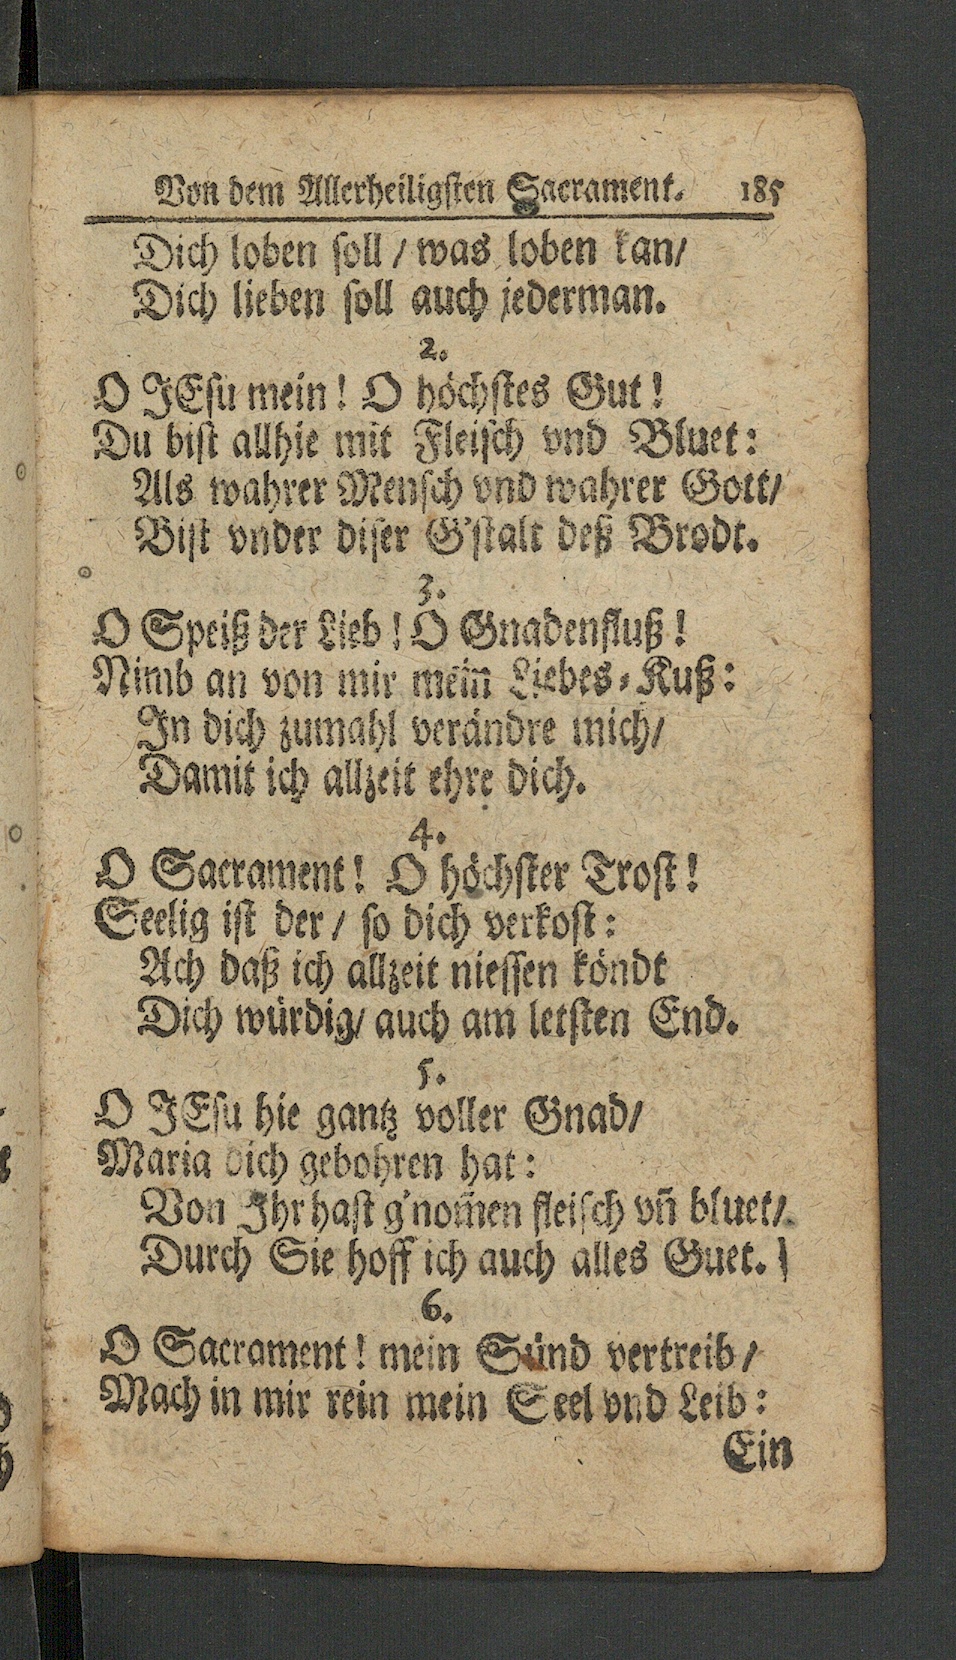 Von dem Allerheiligsten Sacrament. 185
Dich loben soll / was loben kan/
Dich lieben soll auch jederman.
2.
O JEsu mein! O höchstes Gut!
Du bist allhie mit Fleisch vnd Bluet:
Als wahrer Mensch vnd wahrer Gott/
Bist vnder diser G'stalt deß Brodt.
3.
O Speiß der Lieb! O Gnadenfluß!
Nimb an von mir mein Liebes-Kuß:
In dich zumahl verändre mich/
Damit ich allzeit ehre dich.
4.
O Sacrament! O höchster Trost!
Seelig ist der / so dich verkost:
Ach daß ich allzeit niessen köndt
Dich würdig/ auch am letsten End.
5.
O JEsu hie gantz voller Gnad/
Maria dich gebohren hat:
Von Ihr hast g'nom̃en fleisch vñ bluet/
Durch Sie hoff ich auch alles Guet.
6.
O Sacrament! mein Sünd vertreib /
Mach in mir rein mein Seel vnd Leib:
Ein